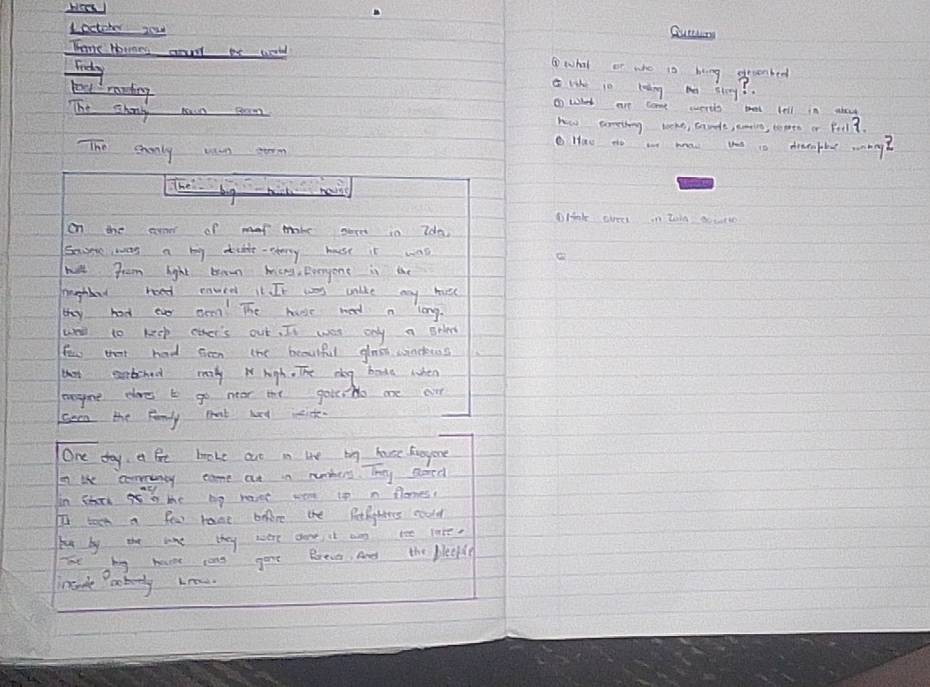 Week 1
1 October
Theme Houses around the world
Friday
Post reading
The Shanly town
The Shanly town
The big house
On the corner of Mofolo street in Zola,
Soweto, was a big double-storey house it was
built from light brown bricks. Everyone in the
neighbod hood envied it. It was unlike any house
they had ever seen! The house had a long,
wall to keep other's out. It was only a select
few that had seen the beautiful glass windows
that stretched really high. The dog barks when
everyone dares to go near the gate. No one ever
seen the family that lived inside.
One day, a fire broke out in the big house. Everyone
in the community came out in numbers. They stared
in shock as the big house went up in flames.
It took a few hours before the firefighters could
but by the time they were done, it was too late.
The big house was gone forever. And the people
inside nobody know.
Questions
① What or who is being described
② Who is telling the story?.
③ What are some words that tell is about
how something looks, sounds, smells, tastes or feel?.
④ How do we know this is descriptive writing?
① street in Zola soweto
②